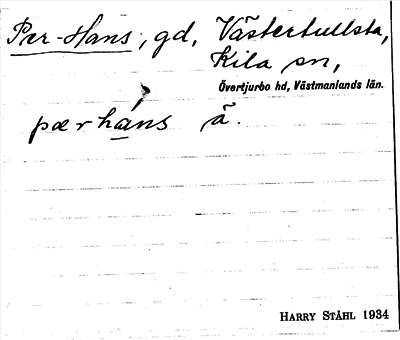 Per-Hans, gd, Västertullsta,
Kila sn,
Övertjurbo hd, Västmanlands län.
pærhans ã.
HARRY STÅHL 1934